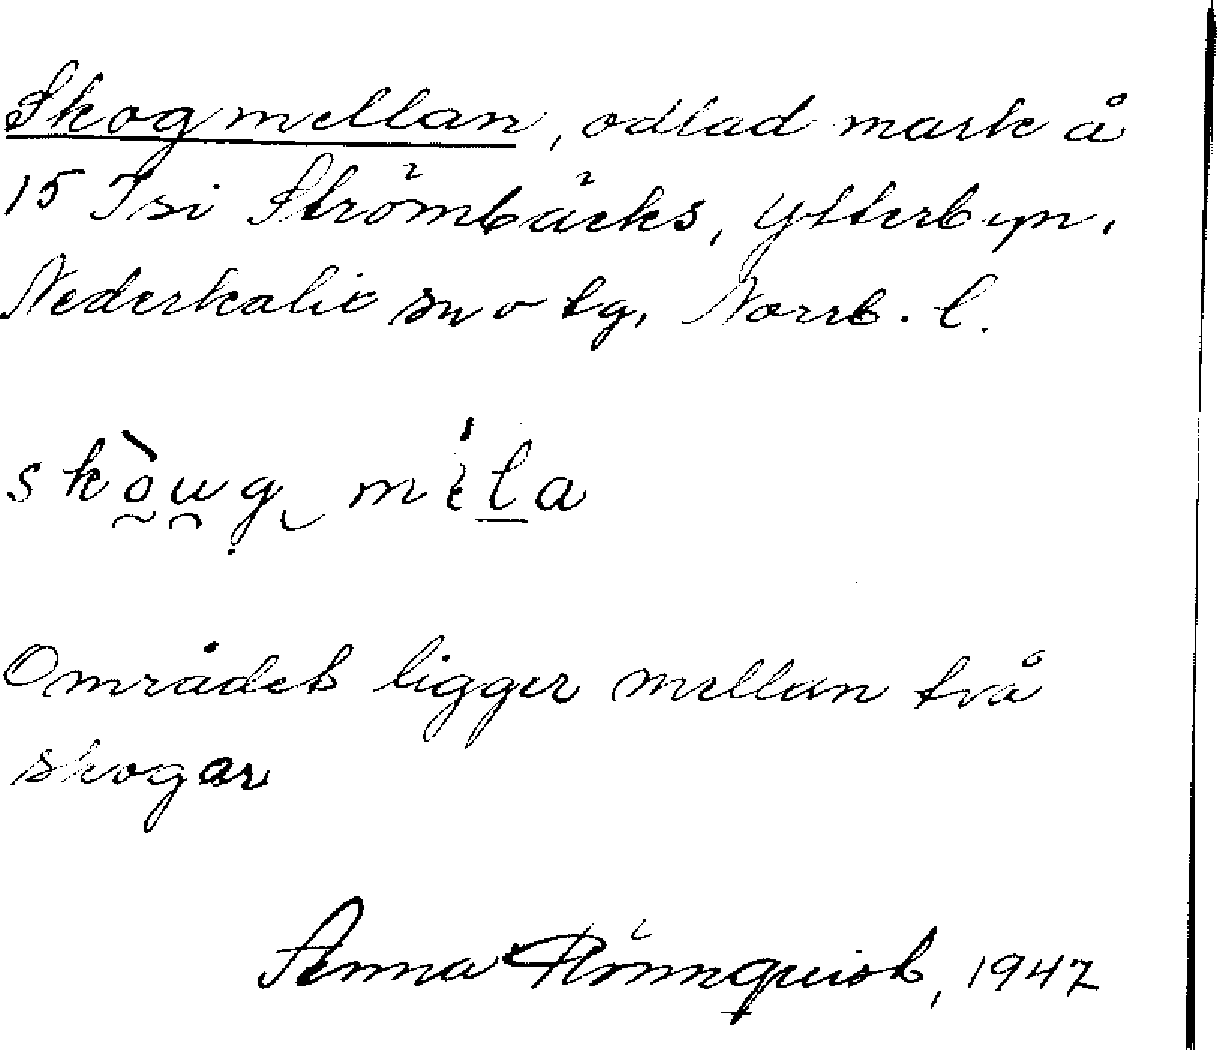 Skogmellan, odlad mark å
15 Isi Strömbäcks, Ytterbyn,
Nederkalix sn o tg, Norrb. l.
mella
Området ligger mellan två
skogar
Anna Rönnquist, 1947